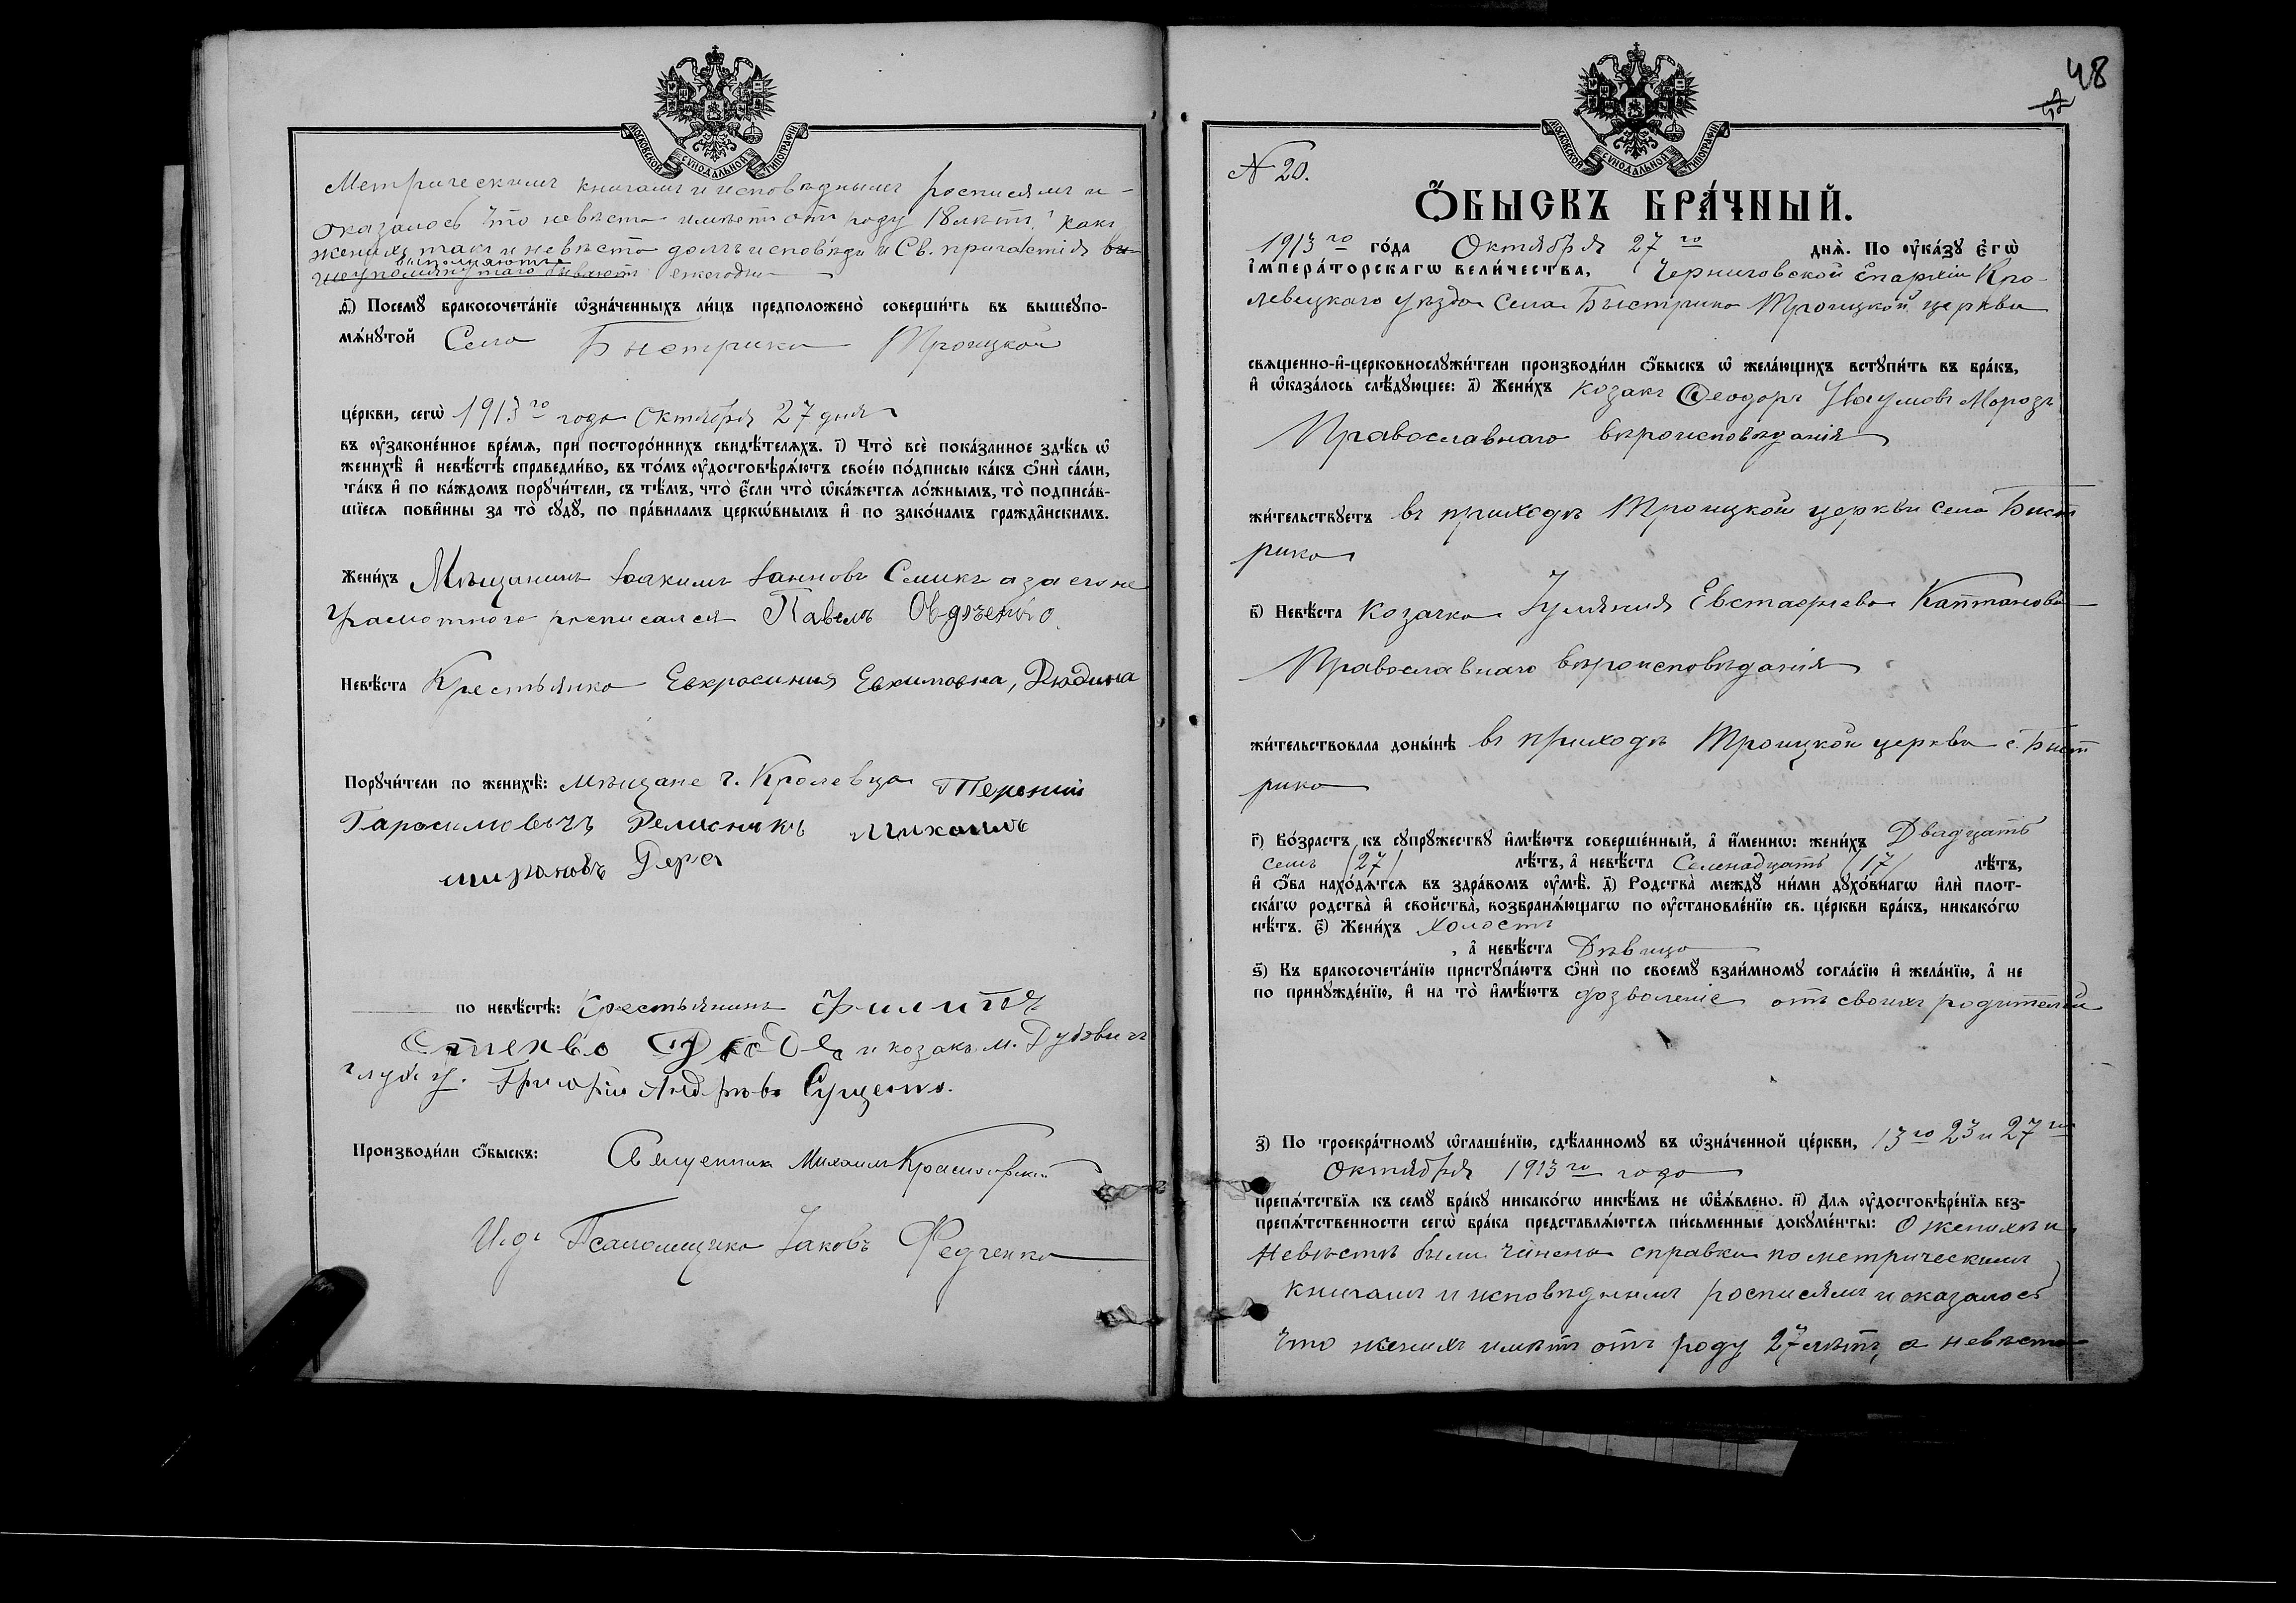 МОСКОВСКОЙ СѴНОДАЛЬНОЙ ТИПОГРАФІИ
Метрическимъ книгамъ и исповѣднымъ росписямъ и
оказалось что невѣста имѣетъ отъ роду 18 лѣтъ. какъ
женихъ такъ и невѣста долгъ исповѣди и Св. причастія
выполняютъ
ежегодно
д҃) Посемꙋ бракосочета́нїе ѡ҆зна́ченныхъ ли́цъ предположено̀ соверши́ть въ вышеꙋпо-
мѧ́нꙋтой Села Быстрика Троицкой
це́ркви, сегѡ̀ 1913го года Октября 27 дня
въ ᲂу҆законе́нное вре́мѧ, при посторо́ннихъ свидѣ́телѧхъ. і҃) Что̀ всѐ пока́занное здѣ́сь ѡ҆
женихѣ̀ и҆ невѣ́стѣ справедли́во, въ то́мъ ᲂу҆достовѣрѧ́ютъ свое́ю по́дписью ка́къ ѻ҆нѝ са́ми,
та́къ и҆ по ка́ждомъ порꙋчи́тели, съ тѣ́мъ, что̀ є҆́сли что̀ ѡ҆ка́жетсѧ ло́жнымъ, то̀ подписа́в-
шїесѧ пови́нны за то̀ сꙋдꙋ̀, по пра́виламъ церко́внымъ и҆ по зако́намъ гражда́нскимъ.
Жени́хъ Мѣщанинъ Іоакимъ Іоанновъ Семикъ а за его не
грамотного росписался Павелъ Овдѣенко
Невѣ́ста Крестьянка Евхросиния Евхимовна, Дюдина
Порꙋчи́тели по женихѣ̀: мѣщане г. Кролевца Терений
Гарасимовичъ Релисникъ Михаилъ
мироновъ Дера
по невѣ́стѣ: Крестьянинъ Филипъ
и козакъ м. Дубовичъ
глух. у. Григорій Андрѣевъ Сущенко.
Производи́ли ѻ҆́быскъ: Священникъ Михаилъ Красногорскій
И.д. Псаломщика Іаковъ Федченко
48
МОСКОВСКОЙ СѴНОДАЛЬНОЙ ТИПОГРАФІИ
№ 20.
Ѻ҆́БЫСКЪ БРА́ЧНЫЙ.
1913го го́да Октября 27го днѧ̀. По ᲂу҆ка́зꙋ є҆гѡ̀
і҆мпера́торскагѡ вели́чества, Черниговской Епархіи Кро-
левецкаго уѣзда Села Быстрика Троицкой церкви
свѧщенно-и҆-церковнослꙋжи́тели производи́ли ѻ҆́быскъ ѡ҆ жела́ющихъ встꙋпи́ть въ бра́къ,
и҆ ѡ҆каза́лось слѣ́дꙋющее: а҃) Жени́хъ козакъ Ѳеодоръ Наумовъ Морозъ
Православнаго вѣроисповѣданія
жи́тельствꙋетъ въ приходѣ Троицкой церкви села Быст
рика
в҃) Невѣ́ста козачка Іуліянія Евстафіева Каптанова
Православнаго вѣроисповѣданія
жи́тельствовала доны́нѣ въ приходѣ Троицкой церкви с. Быст
рика
г҃) Во́зрастъ къ сꙋпрꙋ́жествꙋ и҆мѣ́ютъ соверше́нный, а҆ и҆́меннѡ: жени́хъ Двадцать
семь /27/ лѣ́тъ, а҆ невѣ́ста Семнадцать /17/ лѣ́тъ,
и҆ ѻ҆́ба нахо́дѧтсѧ въ здра́вомъ ᲂу҆мѣ̀. д҃) Родства̀ междꙋ̀ ни́ми дꙋхо́внагѡ и҆лѝ плот-
ска́гѡ родства̀ и҆ свойства̀, возбранѧ́ющагѡ по ᲂу҆становле́нїю св. це́ркви бра́къ, никако́гѡ
нѣ́тъ. є҃) Жени́хъ Холостъ
, а҆ невѣ́ста Дѣвица
ѕ҃) Къ бракосочета́нїю пристꙋпа́ютъ ѻ҆нѝ по своемꙋ̀ взаи́мномꙋ согла́сїю и҆ жела́нїю, а҆ не
по принꙋжде́нїю, и҆ на то̀ и҆мѣ́ютъ дозволеніе отъ своихъ родителей
з҃) По троекра́тномꙋ ѡ҆глаше́нїю, сдѣ́ланномꙋ въ ѡ҆зна́ченной це́ркви, 13го 23 и 27го
Октября 1913го года
препѧ́тствїѧ къ семꙋ̀ бра́кꙋ никако́гѡ никѣ́мъ не ѡ҆бъѧ́влено. и҃) Длѧ ᲂу҆достовѣре́нїѧ без-
препѧ́тственности сегѡ̀ бра́ка представлѧ́ютсѧ пи́сьменные докꙋме́нты: О женихѣ и
Невѣстѣ были чинена справки по метрическимъ
книгамъ и исповѣднымъ росписямъ и оказалось
что женихъ имѣетъ отъ роду 27 лѣтъ, а невѣста